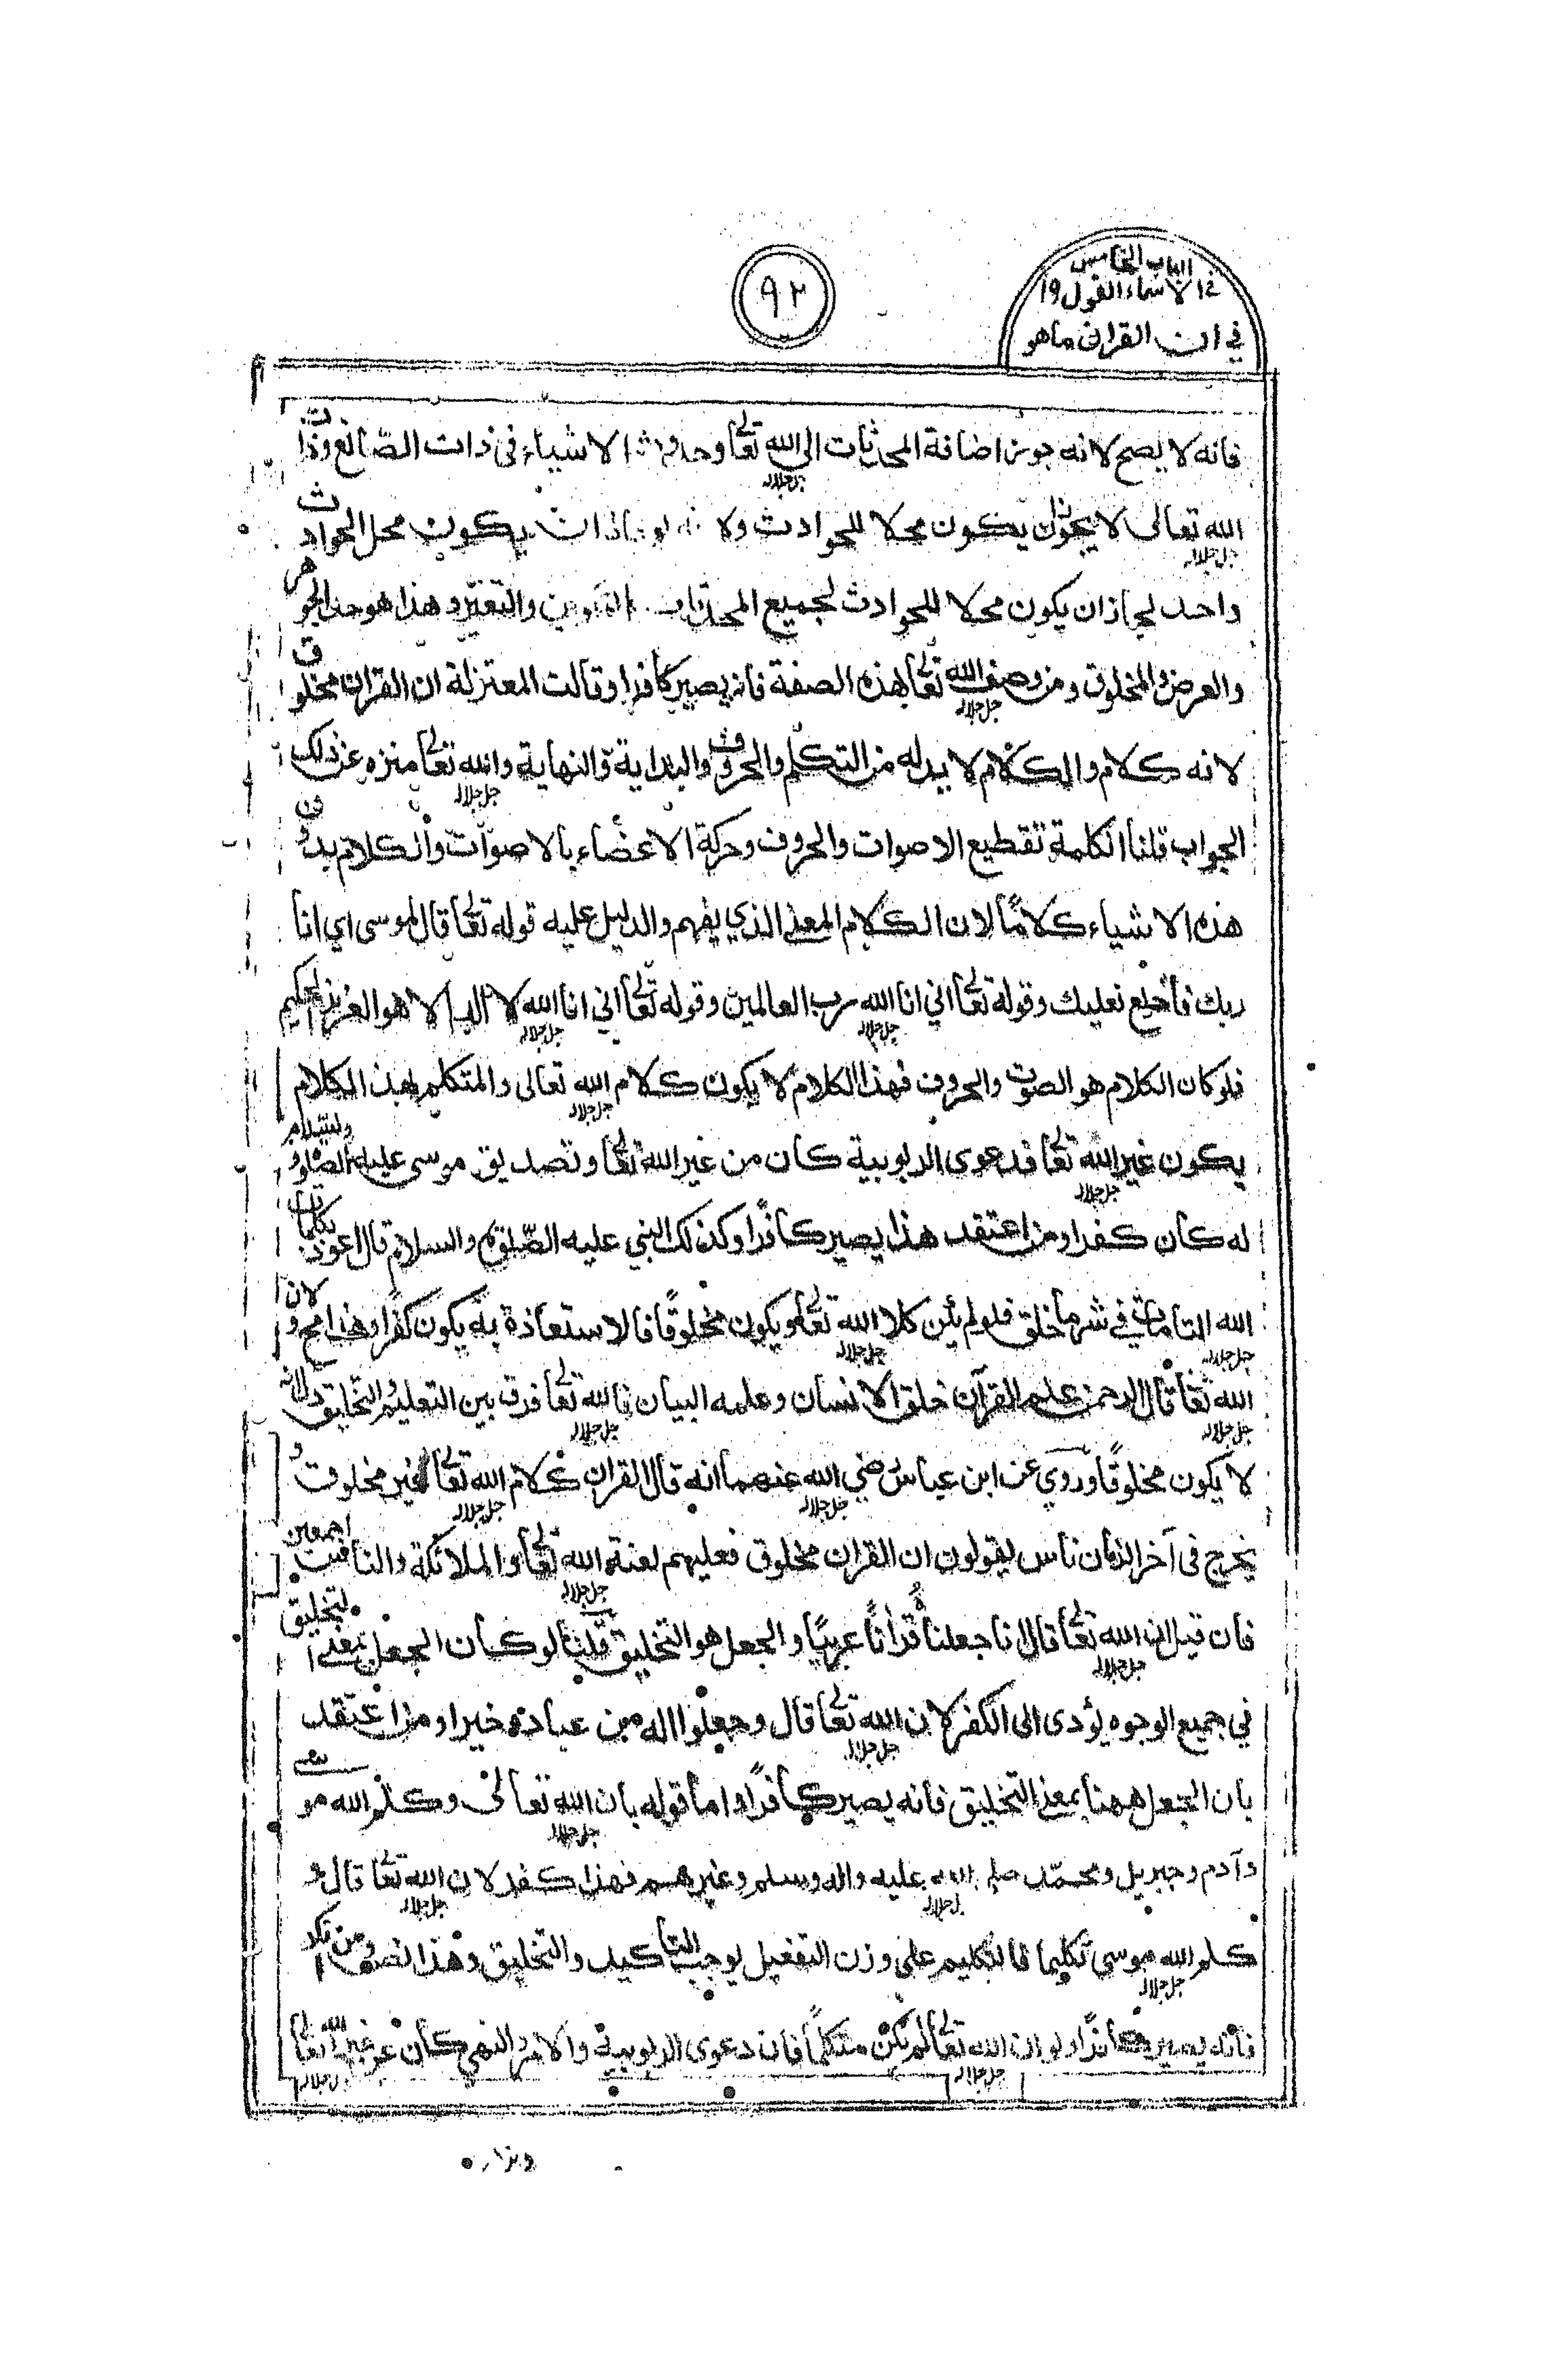 الباب الخامس
في الاسماء القول ١٩
في ان القران ماهو
٩٢
فانه لا يصح لانه جوز اضافة المحدثات الى الله تعالى وحدوث الاشياء فى ذات الصانع وذات
جل جلاله
الله تعالى لا يجوز ان يكون محلا للحوادث ولانه لو جاز ان يكون محل الحوادث
جل جلاله
واحد لجاز ان يكون محلا للحوادث لجميع المحدثات والتغير وهذا هو حد الجوهر
والعرض والمخلوق ومن وصف الله تعالى بهذه الصفة فانه يصير كافرا وقالت المعتزلة ان القران مخلوق
جل جلاله
لانه كلام والكلام لا بد له من التكلم والحروف والبداية والنهاية والله تعالى منزه عن ذلك
جل جلاله
الجواب قلنا الكلمة تقطيع الاصوات والحروف وحركة الاعضاء بالاصوات والكلام بدون
هذه الاشياء كلاما لان الكلام المعنى الذي يفهم والدليل عليه قوله تعالى قال لموسى اي انا
ربك فأخلع نعليك وقوله تعالى اني انا الله رب العالمين وقوله تعالى اني انا الله لا اله الا هو العزيز الحكيم
جل جلاله جل جلاله
فلو كان الكلام هو الصوت والحروف فهذا الكلام لا يكون كلام الله تعالى والمتكلم بهذا الكلام
جل جلاله
يكون غير الله تعالى فدعوى الربوبية كان من غير الله تعالى وتصديق موسى عليه الصلوة والسلام
جل جلاله
له كان كفرا ومن اعتقد هذا يصير كافرا وكذلك النبي عليه الصلوة والسلام قال اعوذ بكلمات
الله التامات في شر ما خلق فلو لم يكن كلا الله تعالى ويكون مخلوقا فالاستعاذة به يكون كفرا وهذا لان
جل جلاله جل جلاله
الله تعالى قال الرحمن علم القرآن خلق الانسان وعلمه البيان فالله تعالى فرق بين التعليم والتخليق
جل جلاله جل جلاله
لا يكون مخلوقا وروي عن ابن عباس رضي الله عنهما انه قال القران كلام الله تعالى غير مخلوق و
جل جلاله جل جلاله
يخرج فى آخر الزمان ناس ليقولون ان القران مخلوق فعليهم لعنة الله تعالى والملائكة والناس اجمعين
جل جلاله
فان قيل ان الله تعالى قال انا جعلناه قرانا عربيا والجعل هو التخليق قلنا لو كان الجعل بمعنى التخليق
جل جلاله
في جميع الوجوه يؤدى الى الكفر لان الله تعالى قال وجعلوا اله من عباده خيرا ومن اعتقد
جل جلاله
بان الجعل ههنا بمعنى التخليق فانه يصير كافرا واما قوله بان الله تعالى وكلم الله موسى
جل جلاله
وآدم وجبريل ومحمد صلى الله عليه واله وسلم وغيرهم فهذا كفر لان الله تعالى قال و
جل جلاله جل جلاله
كلم الله موسى تكليما فالتكليم على وزن التفعيل يوجب التاكيد والتخليق وهذا نص ومن انكر
جل جلاله
فانه يصير كافرا ولو ان الله تعالى لم يكن متكلما فان دعوى الربوبية والامر والنهي كان عن غير الله تعالى
جل جلاله جل جلاله